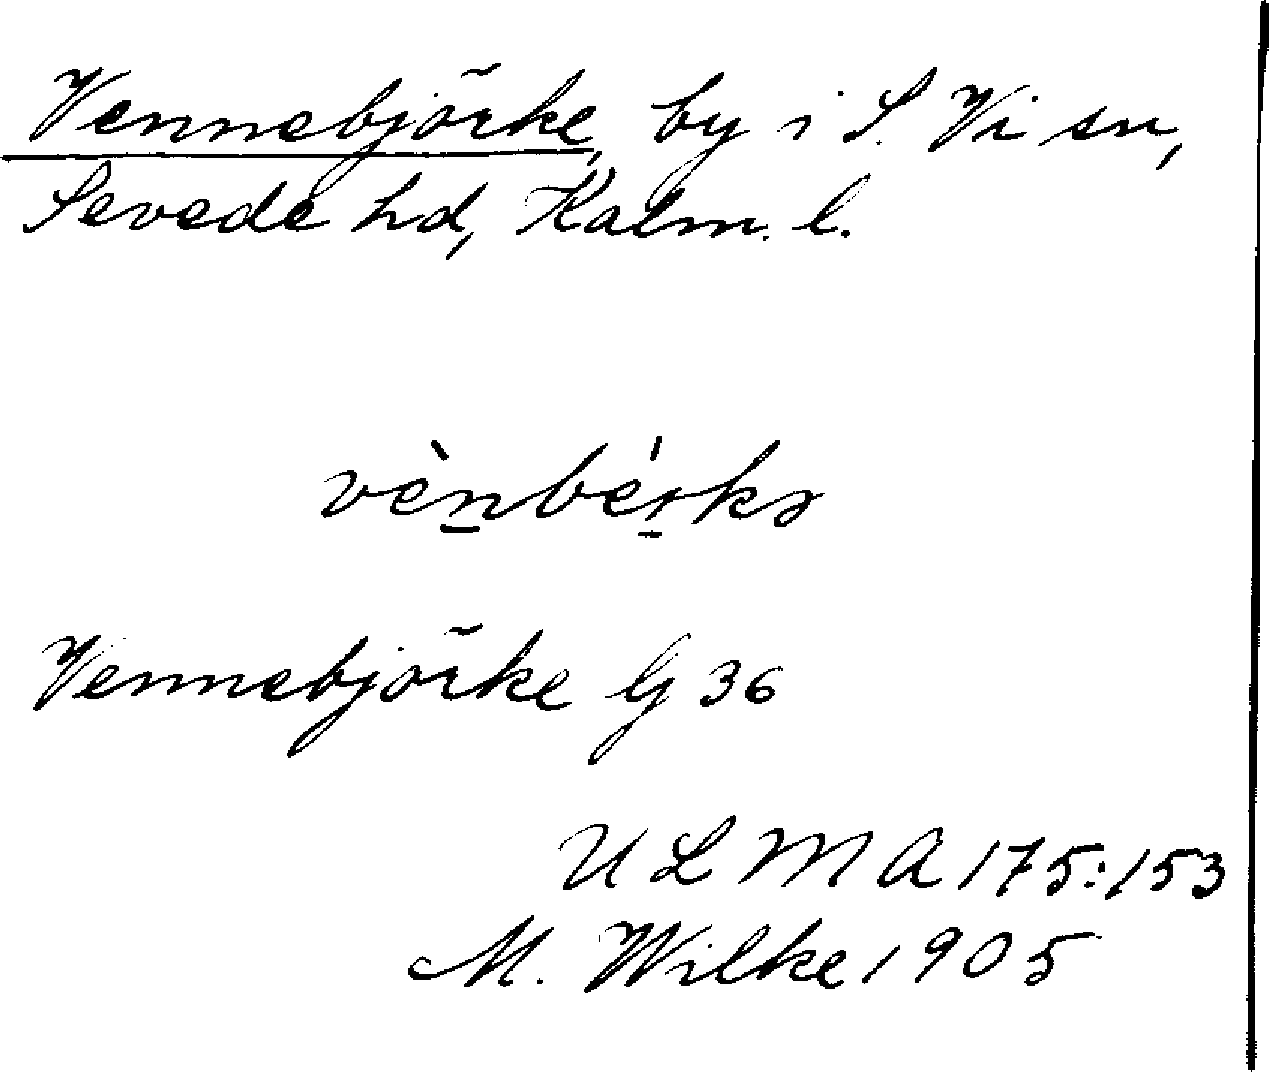 Vennebjörke, by i S. Vi sn,
Sevede hd, Kalm. l.
vèn̲bér̲kə
Vennebjörke G 36
ULMA 175:153
M. Wilke 1905